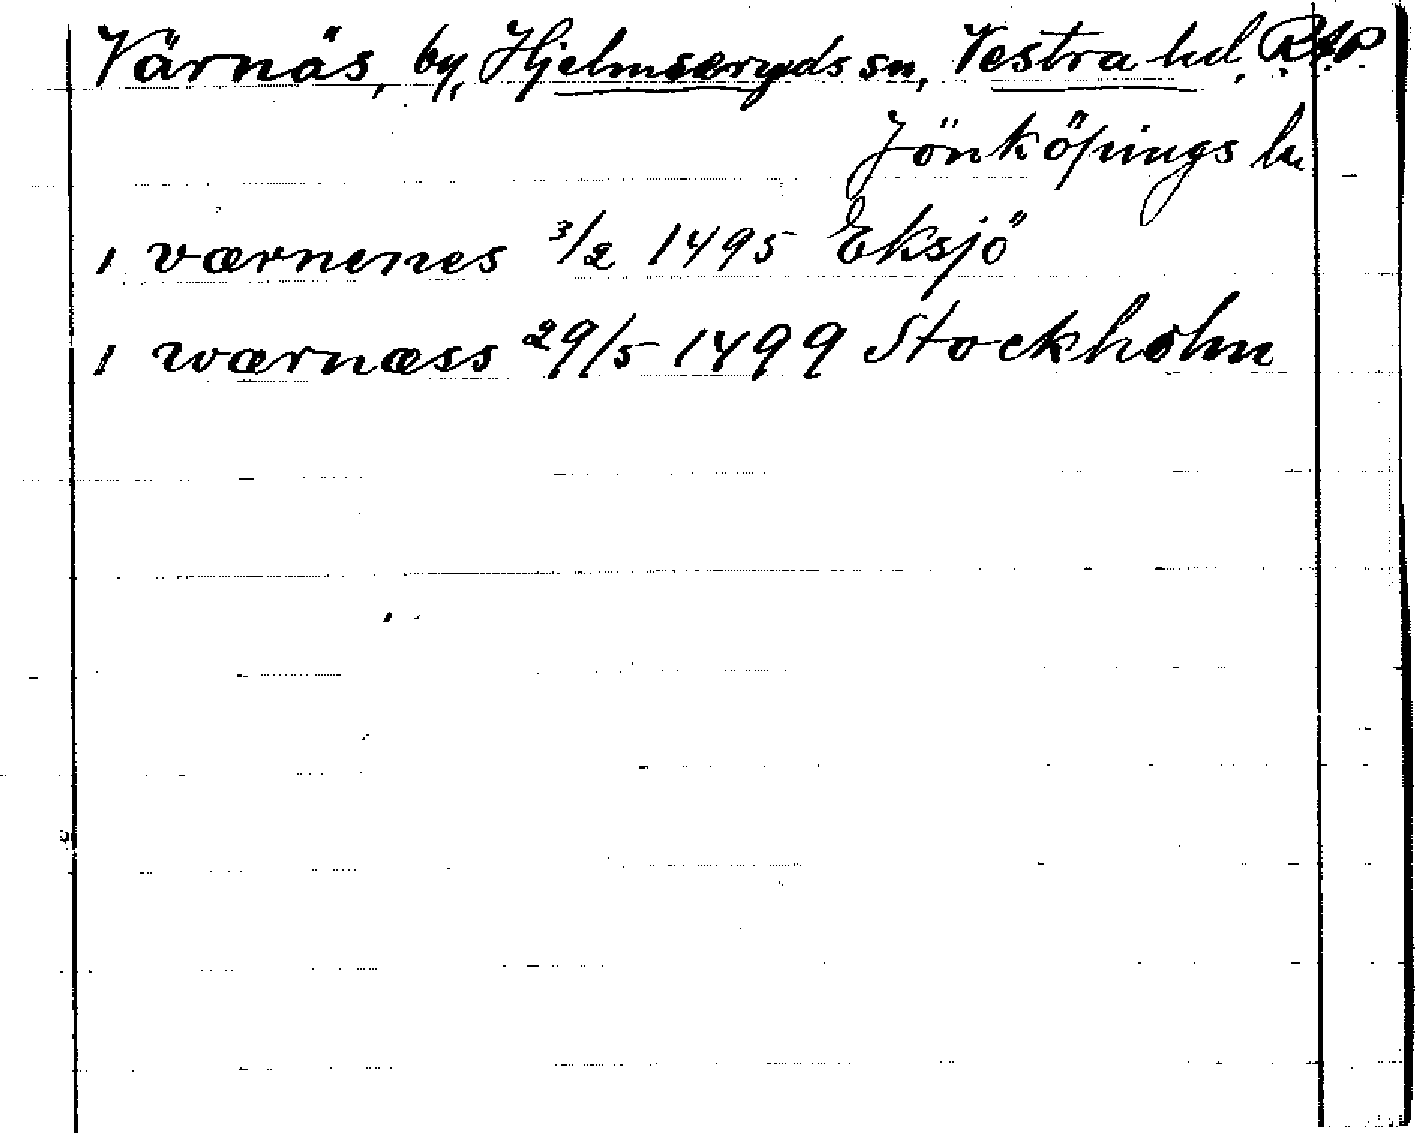 Värnäs, by, Hjelmseryds sn, Vestra hd, RAP
Jönköpings ln
i værnenes 3/2 1495 Eksjö
i wærnæss 29/5 1499 Stockholm